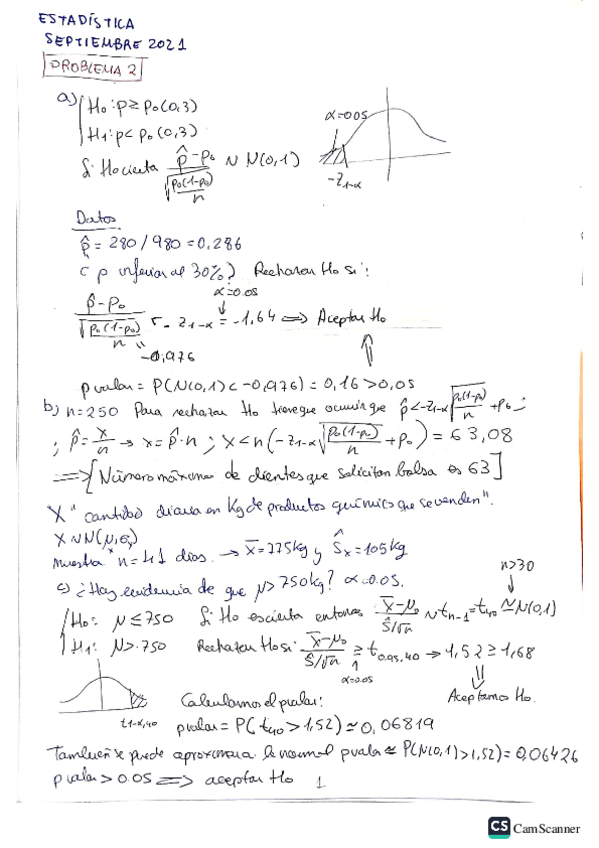 ESTADÍSTICA
SEPTIEMBRE 2021
PROBLEMA 2
a) H₀: p ≥ p₀ (0,3)
H₁: p < p₀ (0,3)
α=0.05
Si H₀ cierta (p̂ - p₀) / √(p₀(1-p₀)/n) ~ N(0,1)
-Z₁₋α
Datos
p̂ = 280/980 = 0,286
¿ p inferior al 30%? Rechazar H₀ si:
α=0.05
(p̂ - p₀) / √(p₀(1-p₀)/n) < -Z₁₋α = -1,64 ⟹ Aceptar H₀
-0,976
p valor = P(N(0,1) < -0,976) = 0,16 > 0,05
b) n=250 Para rechazar H₀ tiene que ocurrir que p̂ < -Z₁₋α √(p₀(1-p₀)/n) + p₀ ;
; p̂ = x/n → x = p̂·n ; x < n(-Z₁₋α √(p₀(1-p₀)/n) + p₀) = 63,08
⟹ [Número máximo de clientes que solicitan bolsa es 63]
X "cantidad diaria en Kg de productos químicos que se venden".
X ~ N(μ,σₓ)
muestra n=41 días. → x̄=775kg y Ŝₓ=105kg
c) ¿Hay evidencia de que μ > 750kg? α=0.05.
n>30
H₀: μ ≤ 750 Si H₀ es cierta entonces (x̄-μ₀)/(Ŝ/√n) ~ tₙ₋₁ = t₄₀ ≃ N(0,1)
H₁: μ > 750 Rechazar H₀ si: (x̄-μ₀)/(Ŝ/√n) ≥ t₀.₉₅,₄₀ → 1,52 ≥ 1,68
α=0.05
Aceptamos H₀.
t₁₋α,₄₀
Calculamos el pvalor:
pvalor = P(t₄₀ > 1,52) ≃ 0,06819
También se puede aproximar a la normal pvalor ≈ P(N(0,1) > 1,52) = 0,06426
p valor > 0.05 ⟹ aceptar H₀
1
CS CamScanner